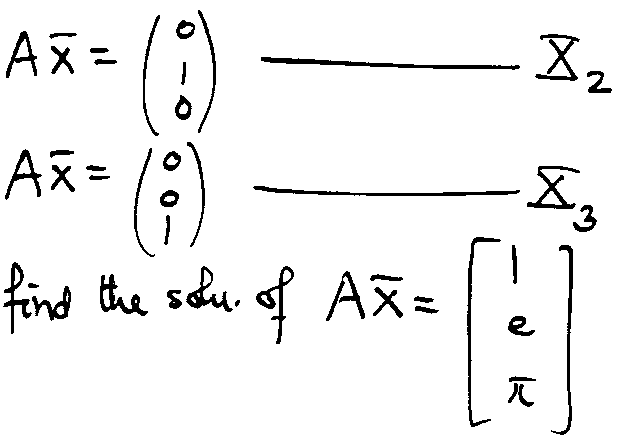 A x̄ = (0 1 0) ——— X̲̅₂
A x̄ = (0 0 1) ——— X̲̅₃
find the solu. of A x̄ = [1 e π]